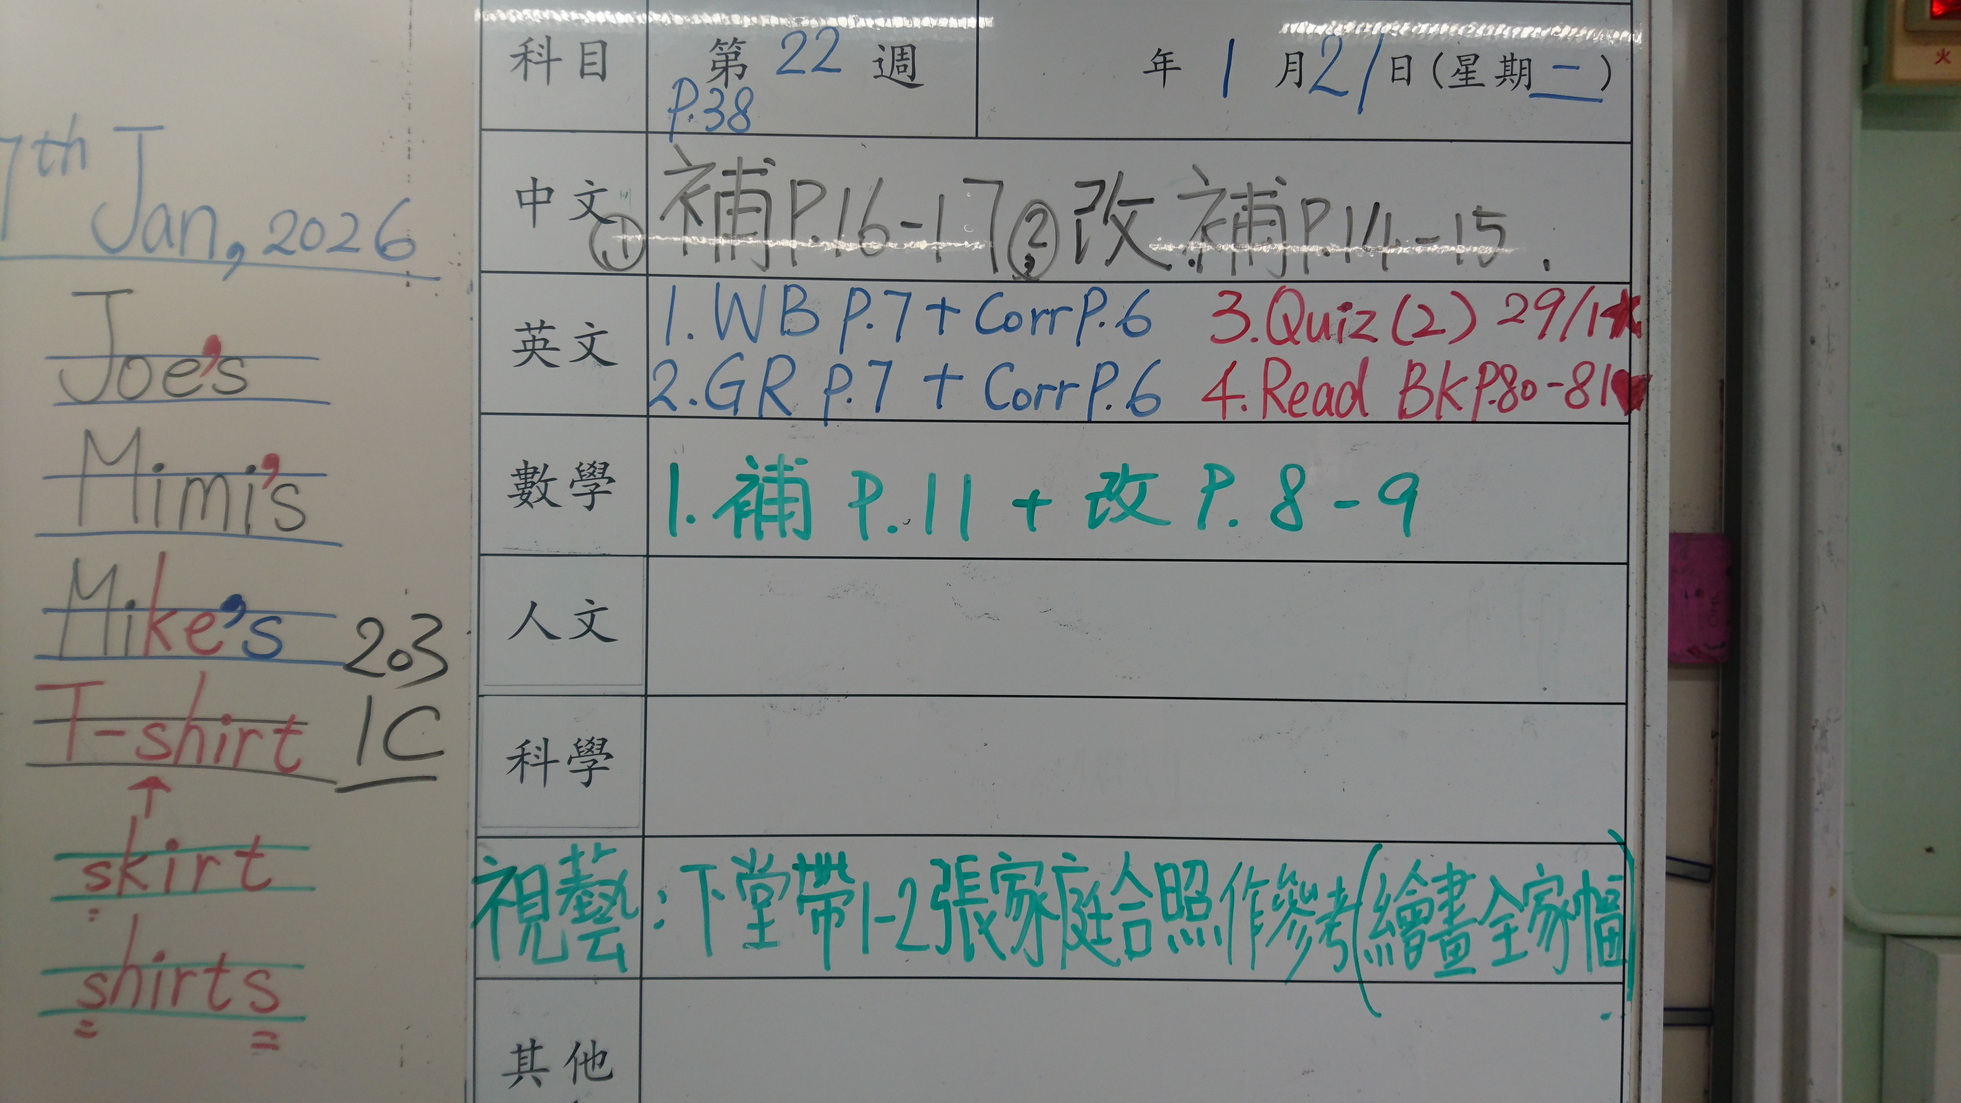 7th Jan, 2026
Joe's
Mimi's
Mike's
T-shirt
skirt
shirts
203
1C
科目 第 22 週 年 1 月 21 日(星期二)
P.38
中文 ① 補P.16-17 ② 改補P.14-15.
英文 1. WB P.7 + Corr P.6 3. Quiz (2) 29/1
2. GR P.7 + Corr P.6 4. Read BK P.80-81
數學 1. 補 P.11 + 改 P.8-9
人文
科學
視藝:下堂帶1-2張家庭合照作參考(繪畫全家幅)
其他
火